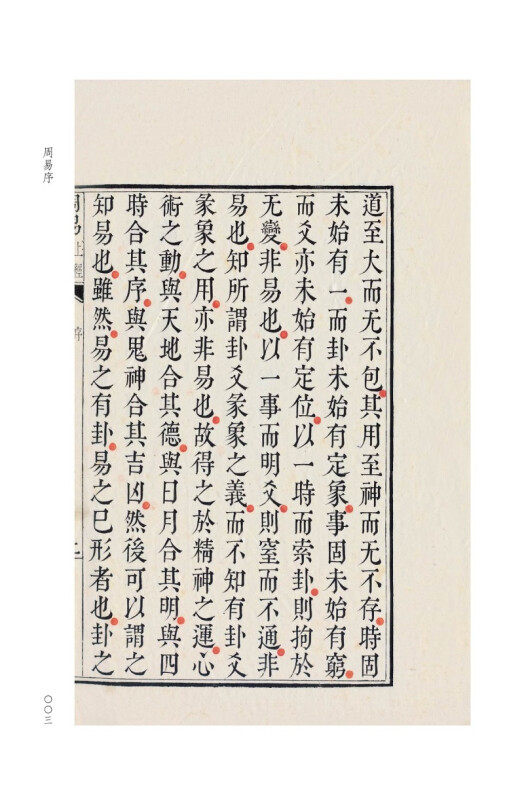 道至大而无不包其用至神而无不存時固
未始有一而卦未始有定象事固未始有窮
而爻亦未始有定位以一時而索卦則拘於
无變非易也以一事而明爻則窒而不通非
易也知所謂卦爻彖象之義而不知有卦爻
彖象之用亦非易也故得之於精神之運心
術之動與天地合其德與日月合其明與四
時合其序與鬼神合其吉凶然後可以謂之
知易也雖然易之有卦易之已形者也卦之
周易序
〇〇三